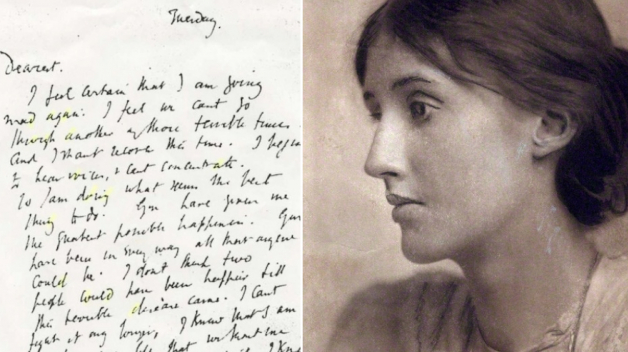 Tuesday.
Dearest.
I feel certain that I am going
mad again: I feel we cant go
through another of those terrible times.
And I shant recover this time. I begin
to hear voices, & cant concentrate.
So I am doing what seems the best
thing to do. You have given me
the greatest possible happiness. You
have been in every way all that anyone
could be. I dont think two
people could have been happier till
this terrible disease came. I cant
fight it any longer, I know that I am
life, that without me